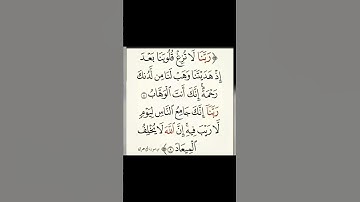 ﴿رَبَّنَا لَا تُزِغْ قُلُوبَنَا بَعْدَ
إِذْ هَدَيْتَنَا وَهَبْ لَنَا مِن لَّدُنكَ
رَحْمَةً إِنَّكَ أَنتَ الْوَهَّابُ ۝٨
رَبَّنَا إِنَّكَ جَامِعُ النَّاسِ لِيَوْمٍ
لَّا رَيْبَ فِيهِ إِنَّ اللَّهَ لَا يُخْلِفُ
الْمِيعَادَ ۝٩﴾